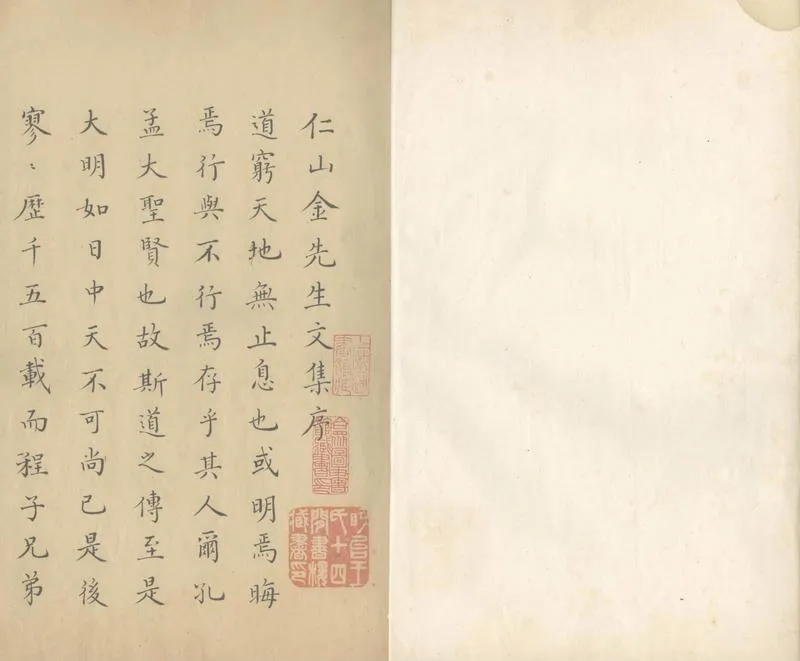 仁山金先生文集序
道窮天地無止息也或明焉晦
焉行與不行焉存乎其人爾孔
孟大聖賢也故斯道之傳至是
大明如日中天不可尚已是後
寥〻歷千五百載而程子兄弟